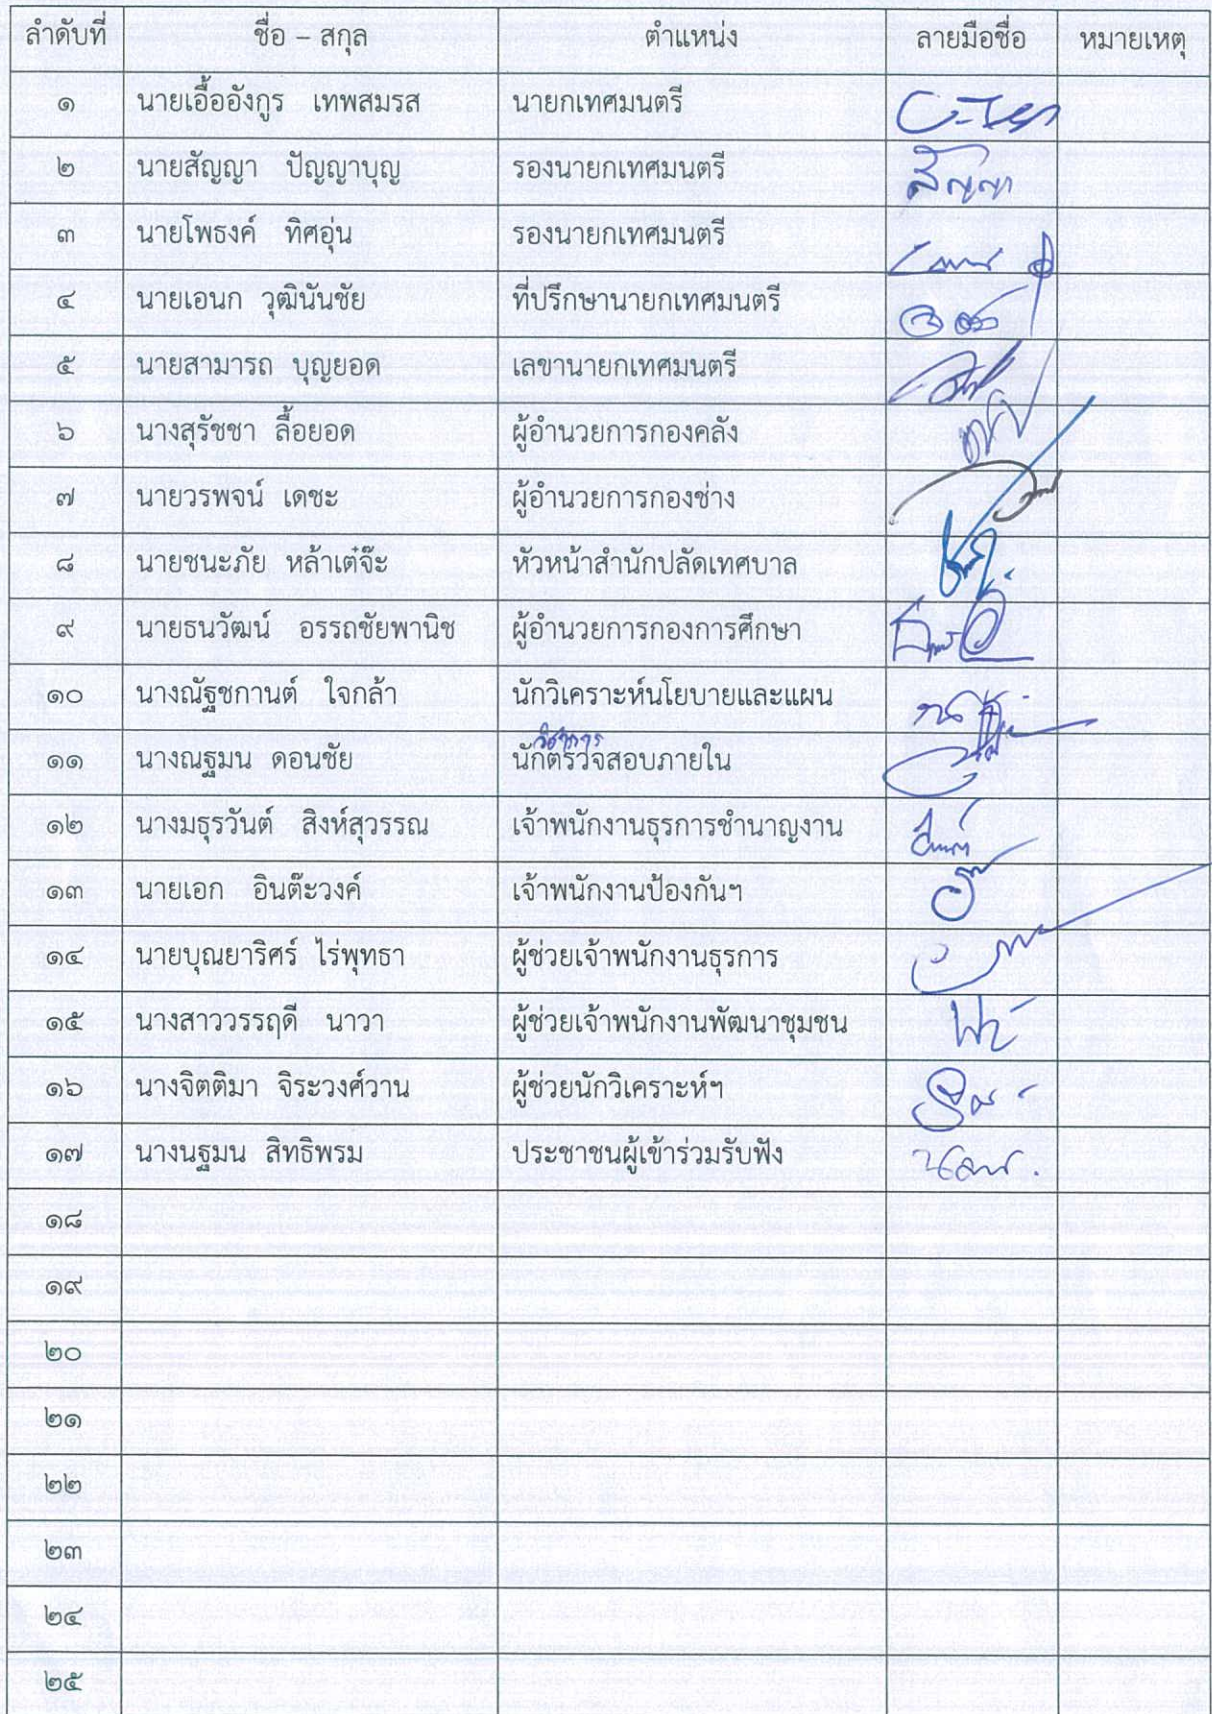 ลำดับที่ ชื่อ – สกุล ตำแหน่ง ลายมือชื่อ หมายเหตุ
๑ นายเอื้ออังกูร เทพสมรส นายกเทศมนตรี
๒ นายสัญญา ปัญญาบุญ รองนายกเทศมนตรี สัญญา
๓ นายโพธงค์ ทิศอุ่น รองนายกเทศมนตรี
๔ นายเอนก วุฒินันชัย ที่ปรึกษานายกเทศมนตรี
๕ นายสามารถ บุญยอด เลขานายกเทศมนตรี
๖ นางสุรัชชา ลื้อยอด ผู้อำนวยการกองคลัง
๗ นายวรพจน์ เดชะ ผู้อำนวยการกองช่าง
๘ นายชนะภัย หล้าเต๋จ๊ะ หัวหน้าสำนักปลัดเทศบาล
๙ นายธนวัฒน์ อรรถชัยพานิช ผู้อำนวยการกองการศึกษา
๑๐ นางณัฐชกานต์ ใจกล้า นักวิเคราะห์นโยบายและแผน
วิชาการ
๑๑ นางณฐมน ดอนชัย นักตรวจสอบภายใน
๑๒ นางมธุรวันต์ สิงห์สุวรรณ เจ้าพนักงานธุรการชำนาญงาน
๑๓ นายเอก อินต๊ะวงค์ เจ้าพนักงานป้องกันฯ
๑๔ นายบุณยาริศร์ ไร่พุทธา ผู้ช่วยเจ้าพนักงานธุรการ
๑๕ นางสาววรรฤดี นาวา ผู้ช่วยเจ้าพนักงานพัฒนาชุมชน
๑๖ นางจิตติมา จิระวงศ์วาน ผู้ช่วยนักวิเคราะห์ฯ
๑๗ นางนฐมน สิทธิพรม ประชาชนผู้เข้าร่วมรับฟัง
๑๘
๑๙
๒๐
๒๑
๒๒
๒๓
๒๔
๒๕